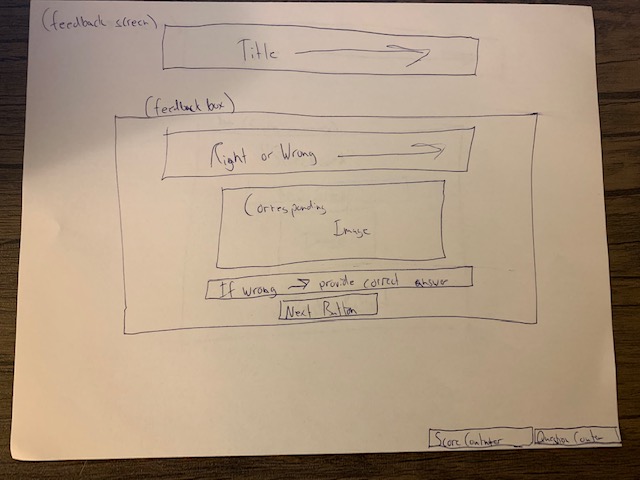 (feedback screen)
Title
(feedback box)
Right or Wrong
Corresponding
Image
If wrong → provide correct answer
Next Button
Score Counter Question Counter